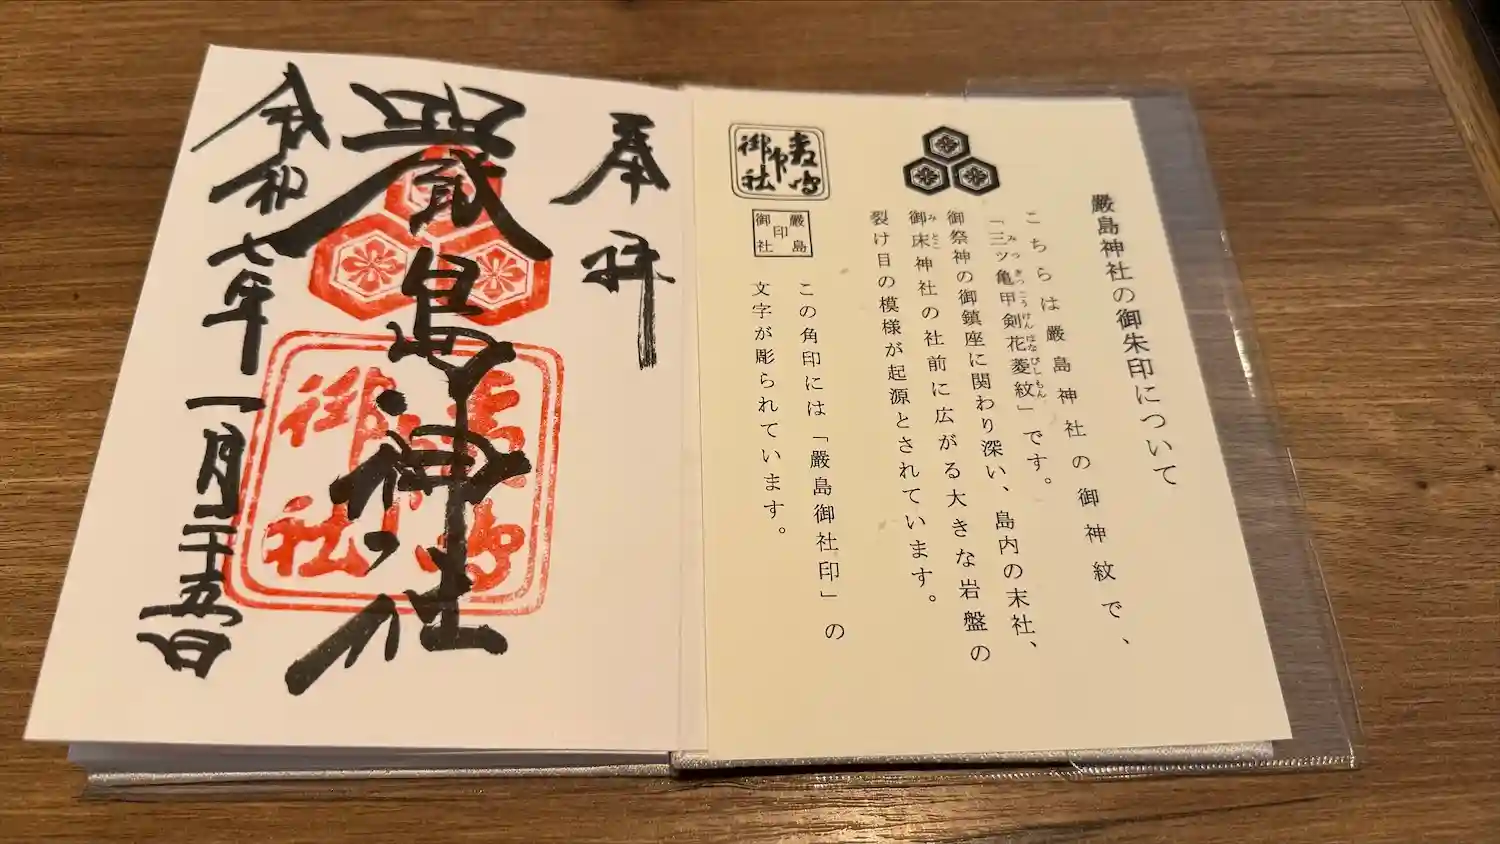 嚴島神社の御朱印について
こちらは嚴島神社の御神紋で、
「三ツ亀甲剣花菱紋」です。
みつきっこうけんはなびしもん
御祭神の御鎮座に関わり深い、島内の末社、
御床神社の社前に広がる大きな岩盤の
みとこ
裂け目の模様が起源とされています。
嚴島
印
御社
この角印には「嚴島御社印」の
文字が彫られています。
奉拝
嚴島神社
令和七年一月二十五日